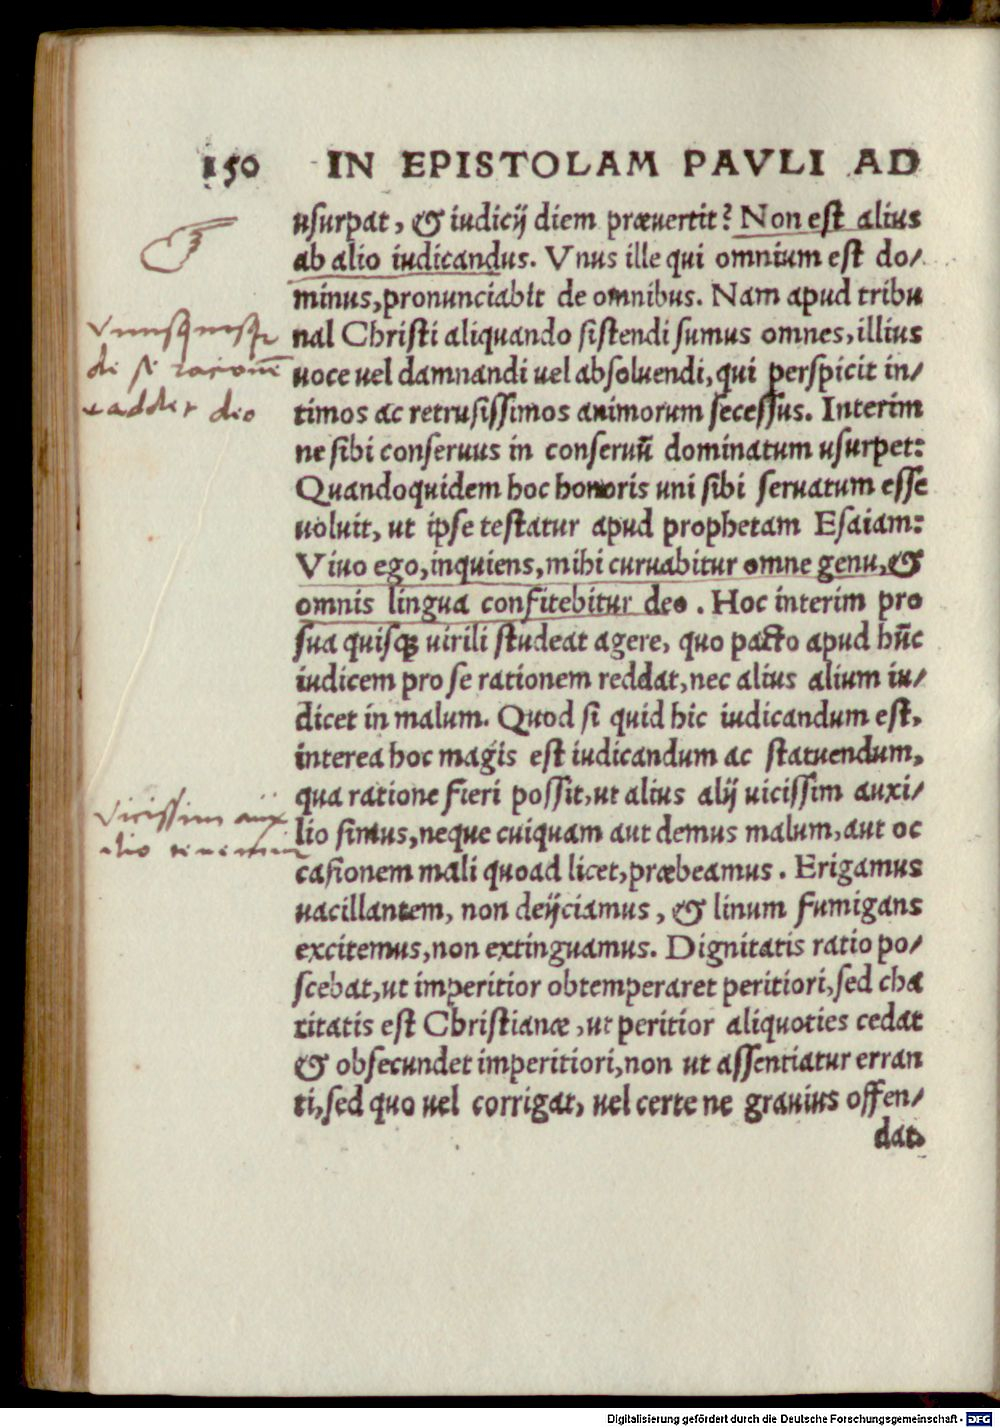 150 IN EPISTOLAM PAVLI AD
usurpat, & iudicij diem præuertit? Non est alius
ab alio iudicandus. Vnus ille qui omnium est do/
minus, pronunciabit de omnibus. Nam apud tribu
nal Christi aliquando sistendi sumus omnes, illius
uoce uel damnandi uel absoluendi, qui perspicit in/
timos ac retrusissimos animorum secessus. Interim
ne sibi conseruus in conseruū dominatum usurpet:
Quandoquidem hoc honoris uni sibi seruatum esse
uoluit, ut ipse testatur apud prophetam Esaiam:
Viuo ego, inquiens, mihi curuabitur omne genu, &
omnis lingua confitebitur deo. Hoc interim pro
sua quisq; uirili studeat agere, quo pacto apud hūc
iudicem pro se rationem reddat, nec alius alium iu/
dicet in malum. Quod si quid hic iudicandum est,
interea hoc magis est iudicandum ac statuendum,
qua ratione fieri possit, ut alius alij uicissim auxi/
lio simus, neque cuiquam aut demus malum, aut oc
casionem mali quoad licet, præbeamus. Erigamus
uacillantem, non deijciamus, & linum fumigans
excitemus, non extinguamus. Dignitatis ratio po/
scebat, ut imperitior obtemperaret peritiori, sed cha
ritatis est Christianæ, ut peritior aliquoties cedat
& obsecundet imperitiori, non ut assentiatur erran
ti, sed quo uel corrigat, uel certe ne grauius offen/
dat.
Vnusq͂usq;
de se racionē
reddet deo
Vicissim aux
ilio
Digitalisierung gefördert durch die Deutsche Forschungsgemeinschaft - DFG